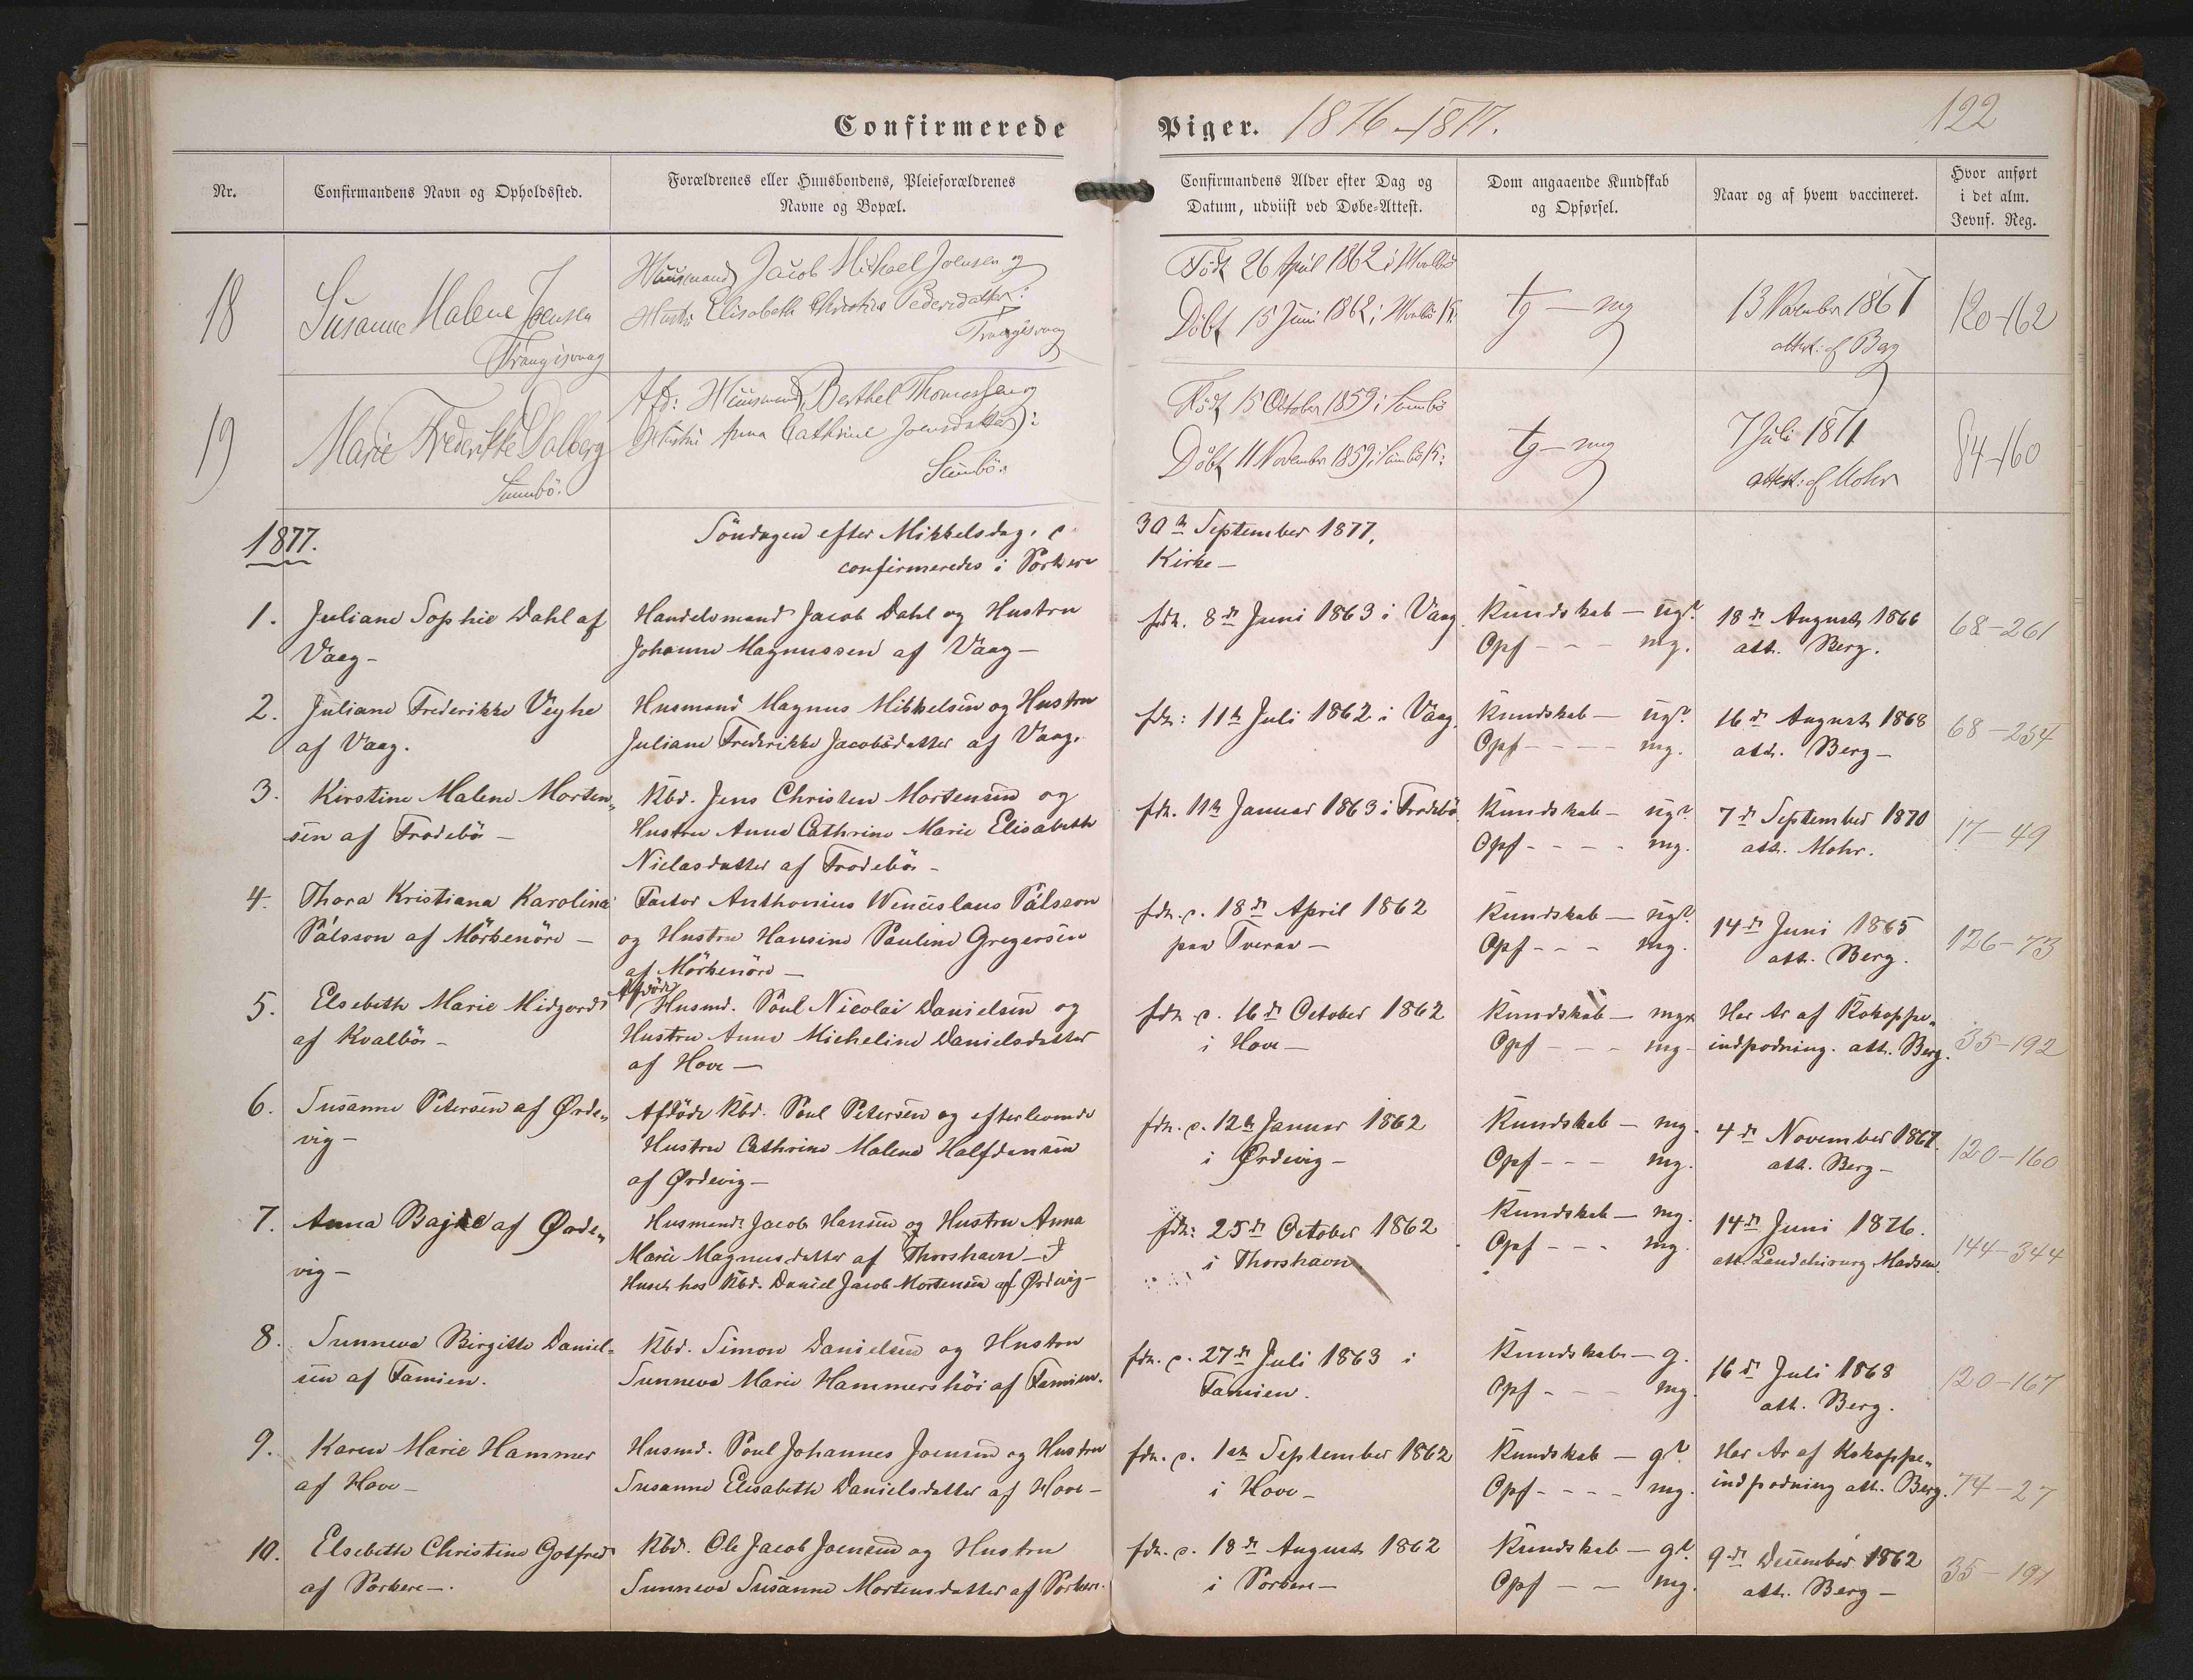 Confirmerede Piger. 1876-1877. 122
Nr.
Confirmandens Navn og Opholdssted.
Forældrenes eller Huusbondens, Pleieforældrenes
Navne og Bopæl.
Confirmandens Alder efter Dag og
Datum, udviist ved Døbe-Attest.
Dom angaaende Kundskab
og Opførsel.
Naar og af hvem vaccineret.
Hvor anført
i det alm.
Jevnf. Reg.
18
Susanne Malene Joensen
Trangisvaag
Huusmand Jacob Michael Joensen og
Hustru Elisabeth Christina Pedersdatter:
Trangisvaag
Født 26 April 1862 i Hvalbö
Döbt 15 Juni 1862 i Hvalbö K.
tg — mg
13 November 1867
attest: af Berg
120-162
19
Marie Frederikke Solberg
Sumbö.
Afd: Huusmand Berthel Thomassen og
Hustru Anna Cathrine Joensdatter):
Sumbö:
Født 15 October 1859 i Sumbö
Döbt 11 November 1859 i Sumbö K:
tg — mg
7 Juli 1871
attest: af Mohr
84-160
1877.
Söndagen efter Mikkelsdag, d. 30te September 1877,
confirmeredes i Porkere Kirke —
1.
Juliane Sophie Dahl af
Vaag —
Handelsmand Jacob Dahl og Hustru
Johanne Magnussen af Vaag —
fdt. 8de Juni 1863 i Vaag.
Kundskab — ug?
Opf - - - mg.
18de August 1866
att. Berg.
68-261
2.
Juliane Frederikke Veyhe
af Vaag.
Husmand Magnus Mikkelsen og Hustru
Juliane Frederikke Jacobsdatter af Vaag.
fdt: 11te Juli 1862 i Vaag.
Kundskab — ug?
Opf - - - - mg.
16de August 1868
att. Berg —
68-254
3.
Kirstine Malene Morten„
sen af Frodebö —
Kbd. Jens Christen Mortensen og
Hustru Anna Cathrine Marie Elisabeth
Niclasdatter af Frodebö —
fdt. 11te Januar 1863 i Frodebö
Kundskab — ug?
Opf - - - - mg.
7de September 1870
att. Mohr.
17-49
4.
Thora Kristiana Karolina
Pálsson af Mörkenöre —
Factor Anthonius Wenceslaus Pálsson
og Hustru Hansine Pauline Gregersen
af Mörkenöre —
fdt. d. 18de April 1862
paa Tveraa —
Kundskab — ug?
Opf - - - mg.
14de Juni 1865
att. Berg.
126-73
5.
Elsebeth Marie Midgord
af Kvalbö —
Afdöde
Husmd. Poul Nicolai Danielsen og
Hustru Anna Micheline Danielsdatter
af Hove —
fdt. d. 16de October 1862
i Hove —
Kundskab — mg
Opf - - - mg -
Har Ar af Kokoppe„
indpodning. att. Berg.
35-192
6.
Susanne Petersen af Ørde„
vig —
Afdöde Kbd. Poul Petersen og efterlevende
Hustru Cathrine Malene Halfdansen
af Ørdevig —
fdt. d. 12te Januar 1862
i Ørdevig —
Kundskab — mg.
Opf - - - mg.
4de November 1867.
att. Berg —
120-160
7.
Anna af Ørde„
vig —
Husmand Jacob Hansen og Hustru Anna
Marie Magnusdatter af Thorshavn — I
Huset hos Kbd. Daniel Jacob Mortensen af Ördevig —
fdt: 25de October 1862
i Thorshavn.
Kundskab — mg.
Opf - - - mg.
14de Juni 1876.
att. Landchirurg Madsen.
144-344
8.
Sunneva Birgitte Daniel„
sen af Famien.
Kbd. Simon Danielsen og Hustru
Sunneva Marie Hammershöi af Famien.
fdt. d. 27de Juli 1863 i
Famien.
Kundskab — g.
Opf - - - mg.
16de Juli 1868
att. Berg.
120-167
9.
Karen Marie Hammer
af Hove —
Husmd. Poul Johannes Joensen og Hustru
Susanne Elisabeth Danielsdatter af Hove —
fdt. d. 1ste September 1862
i Hove —
Kundskab — g?
Opf - - - - mg.
Har Ar af Kokoppe„
indpodning att. Berg.
74-27
10.
Elsebeth Christine Gotfred
af Porkere —.
Kbd. Ole Jacob Joensen og Hustru
Sunneva Susanne Mortensdatter af Porkere.
fdt. d. 18de August 1862
i Porkere —
Kundskab — g?
Opf - - mg.
9de December 1862
att. Berg —
35-191